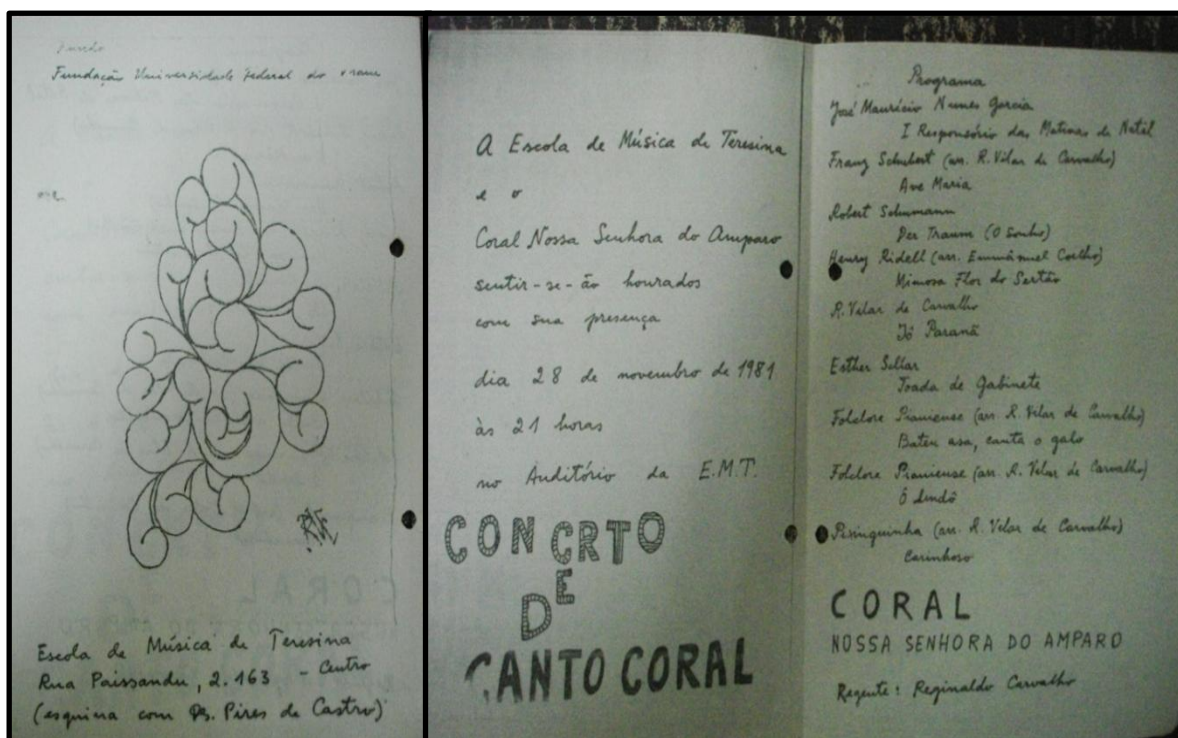 Fundação Universidade Federal do
Escola de Música de Teresina
Rua Paissandu, 2.163 - Centro
(esquina com Pires de Castro)
A Escola de Música de Teresina
e o
Coral Nossa Senhora do Amparo
sentir-se-ão honrados
com sua presença
dia 28 de novembro de 1981
às 21 horas
no Auditório da E.M.T.
CONCRTO
DE
CANTO CORAL
Programa
José Maurício Nunes Garcia
I Responsório das Matinas de Natal
Franz Schubert (arr. R. Vilar de Carvalho)
Ave Maria
Robert Schumann
Der Traum (O Sonho)
Henry Ridell (arr. Emmanuel Coelho)
Mimosa Flor do Sertão
R. Vilar de Carvalho
Jô Paranã
Esther Scliar
Toada de Gabinete
Folclore Piauiense (arr. R. Vilar de Carvalho)
Bateu asa, canta o galo
Folclore Piauiense (arr. R. Vilar de Carvalho)
Ô Lindô
Pixinguinha (arr. R. Vilar de Carvalho)
Carinhoso
CORAL
NOSSA SENHORA DO AMPARO
Regente: Reginaldo Carvalho